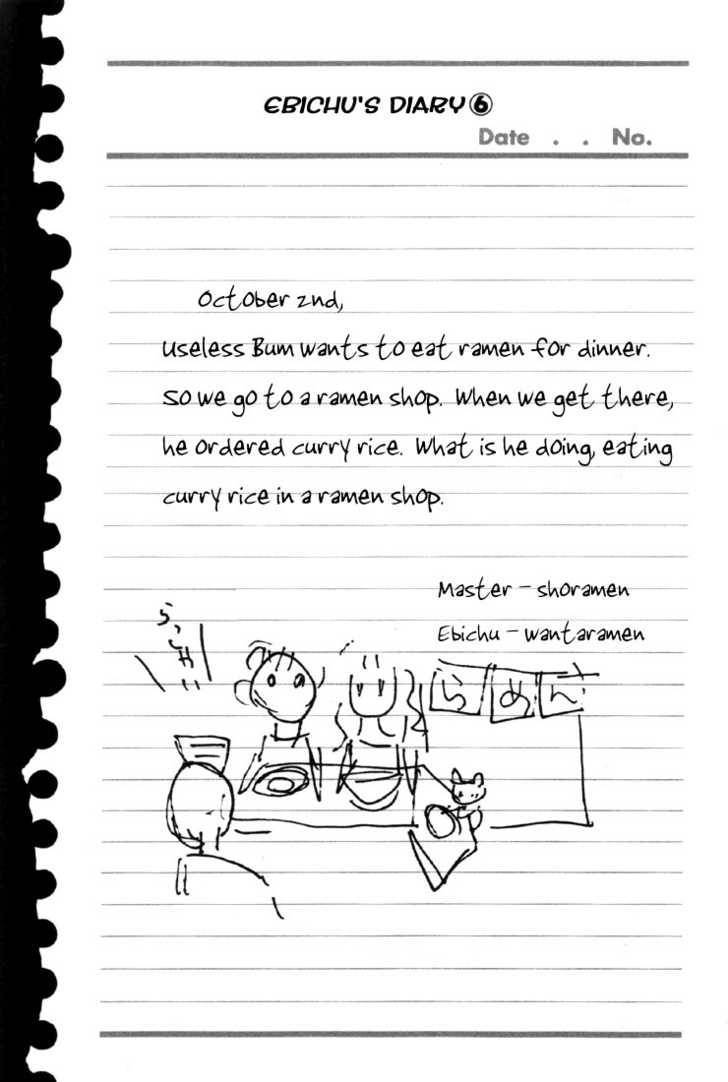 EBICHU'S DIARY⑥
Date . . No.
October 2nd,
Useless Bum wants to eat ramen for dinner.
So we go to a ramen shop. When we get there,
he ordered curry rice. What is he doing, eating
curry rice in a ramen shop.
Master – shoramen
Ebichu – wantaramen
らめん